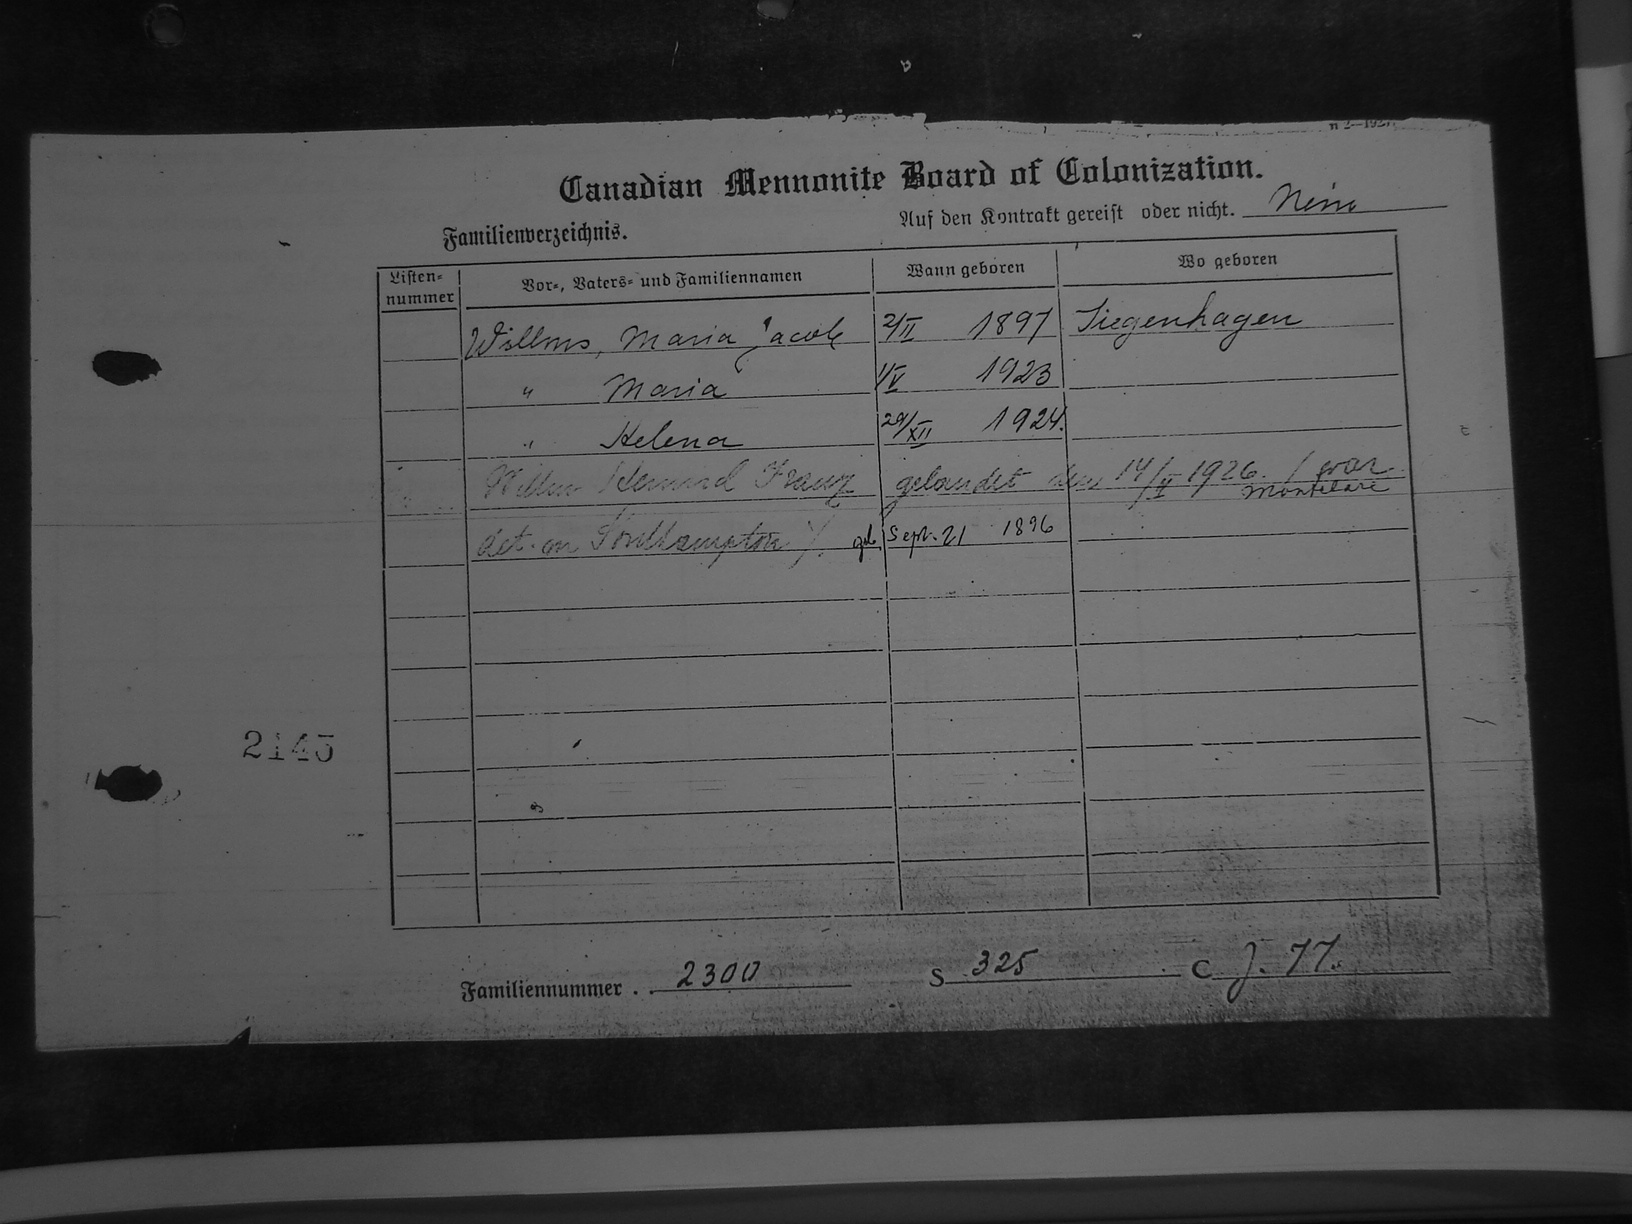 Canadian Mennonite Board of Colonization.
Familienverzeichnis.
Auf den Kontrakt gereist oder nicht. Nein
Listen-nummer Vor-, Vaters- und Familiennamen Wann geboren Wo geboren
Willms, Maria Jacob 2/II 1897 Siegenhagen
" Maria 1/V 1923
" Helena 29/XII 1924.
Willms Heinrich Franz gelandet den 14/V 1926. / war
Montclare
det. in Southampton /. geb. Sept. 21 1896
2145
Familiennummer . . 2300 S 325 C J. 77.